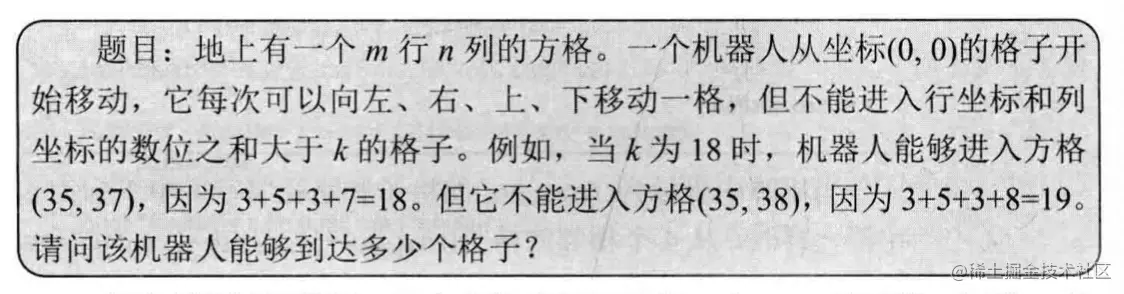 题目：地上有一个 m 行 n 列的方格。一个机器人从坐标(0, 0)的格子开
始移动，它每次可以向左、右、上、下移动一格，但不能进入行坐标和列
坐标的数位之和大于 k 的格子。例如，当 k 为 18 时，机器人能够进入方格
(35, 37)，因为 3+5+3+7=18。但它不能进入方格(35, 38)，因为 3+5+3+8=19。
请问该机器人能够到达多少个格子？
@稀土掘金技术社区